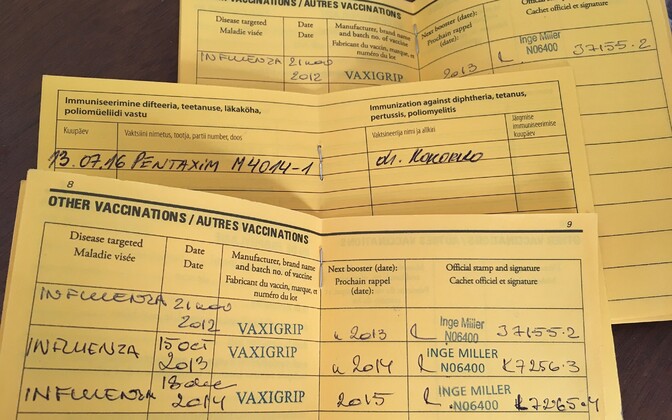 OTHER VACCINATIONS / AUTRES VACCINATIONS
Disease targeted
Maladie visée
Date
Date
Manufacturer, brand name
and batch no. of vaccine
Fabricant du vaccin, marque, et
numéro du lot
Next booster (date):
Prochain rappel
(date):
Official stamp and signature
Cachet officiel et signature
INFLUENZA 21 nov 2012 VAXIGRIP 2013 Inge Miller N06400 J7155-2
Immuniseerimine difteeria, teetanuse, läkaköha,
poliomüeliidi vastu
Immunization against diphtheria, tetanus,
pertussis, poliomyelitis
Kuupäev
Vaktsiini nimetus, tootja, partii number, doos
Vaktsineerija nimi ja allkiri
Järgmise
immuniseerimise
kuupäev
13.07.16 PENTAXIM M4014-1
8
9
OTHER VACCINATIONS / AUTRES VACCINATIONS
Disease targeted
Maladie visée
Date
Date
Manufacturer, brand name
and batch no. of vaccine
Fabricant du vaccin, marque, et
numéro du lot
Next booster (date):
Prochain rappel
(date):
Official stamp and signature
Cachet officiel et signature
INFLUENZA 21 nov 2012 VAXIGRIP 2013 Inge Miller N06400 J7155-2
INFLUENZA 15 oct 2013 VAXIGRIP 2014 INGE MILLER N06400 K7256-3
INFLUENZA 2014 VAXIGRIP 2015 INGE MILLER N06400